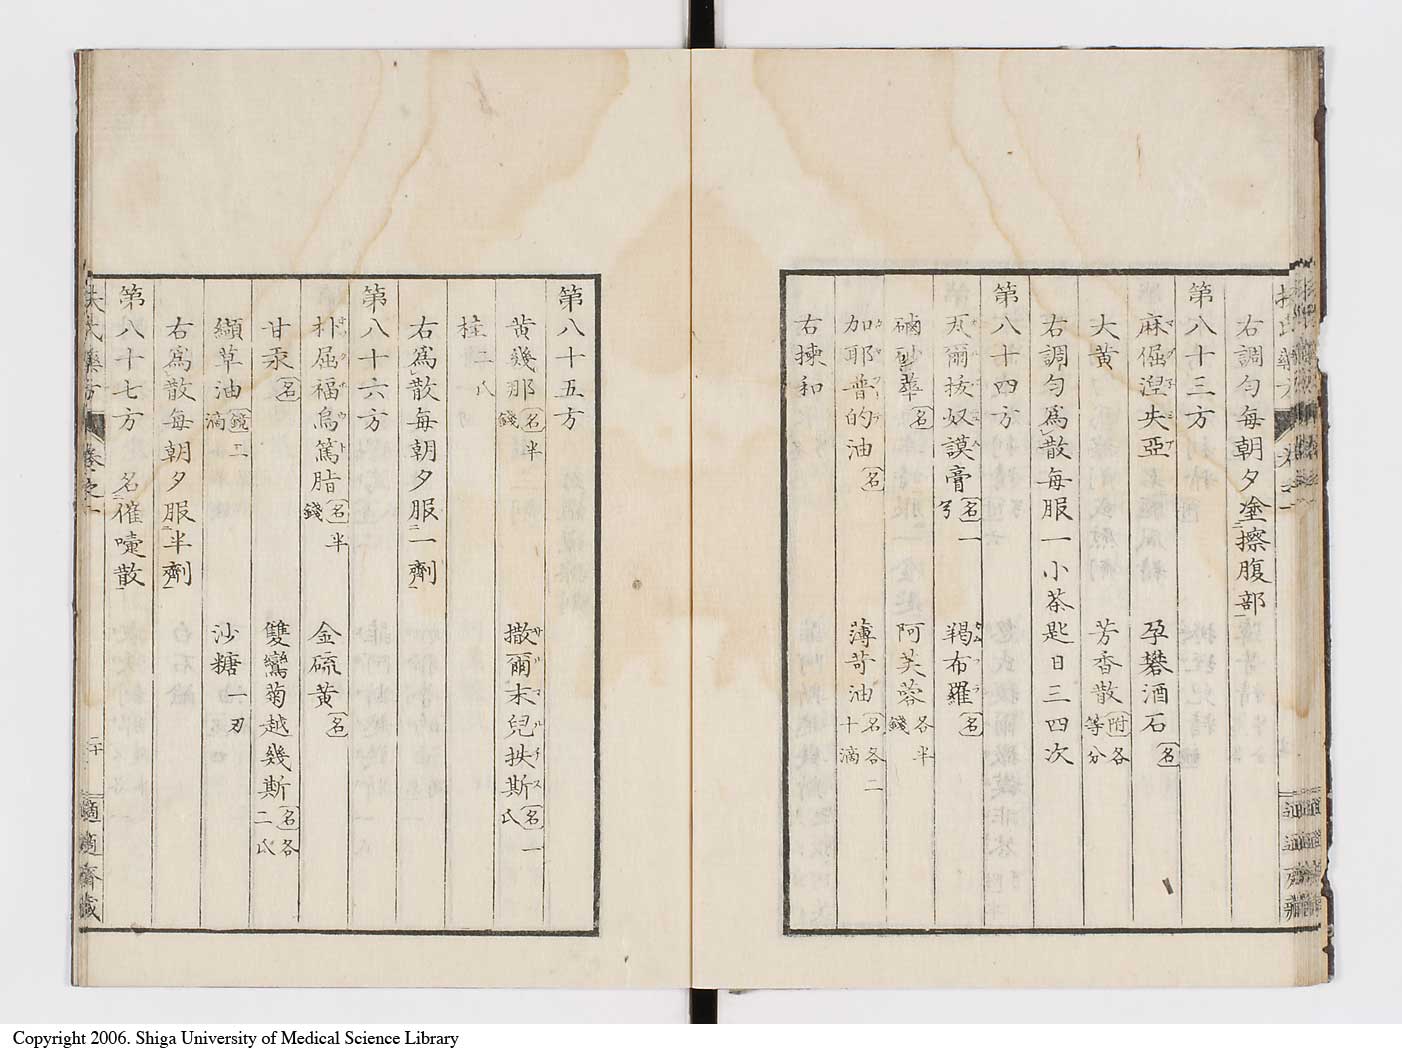 右調勻每朝夕塗擦腹部
第八十三方
麻倔涅失亞 孕礬酒石名
大黄 芳香散附各等分
右調勻爲散每服一小茶匙日三四次
第八十四方
爾拔奴謨膏名一 羯布羅名
硇砂華名 阿芙蓉各半錢
加耶普的油名 薄苛油名各二十滴
右揀和
第八十五方
黄幾那名半錢 撒爾末兒抶斯名一
桂二
右爲散每朝夕服一劑
第八十六方
朴屈福烏篤脂名半錢 金硫黄名
甘汞名 雙鸞菊越幾斯名各二
纈草油鏡二滴 沙糖一刃
右爲散每朝夕服半劑
第八十七方 名催嚏散
氏藥方 卷之一
二十
適適齋藏
Copyright 2006. Shiga University of Medical Science Library